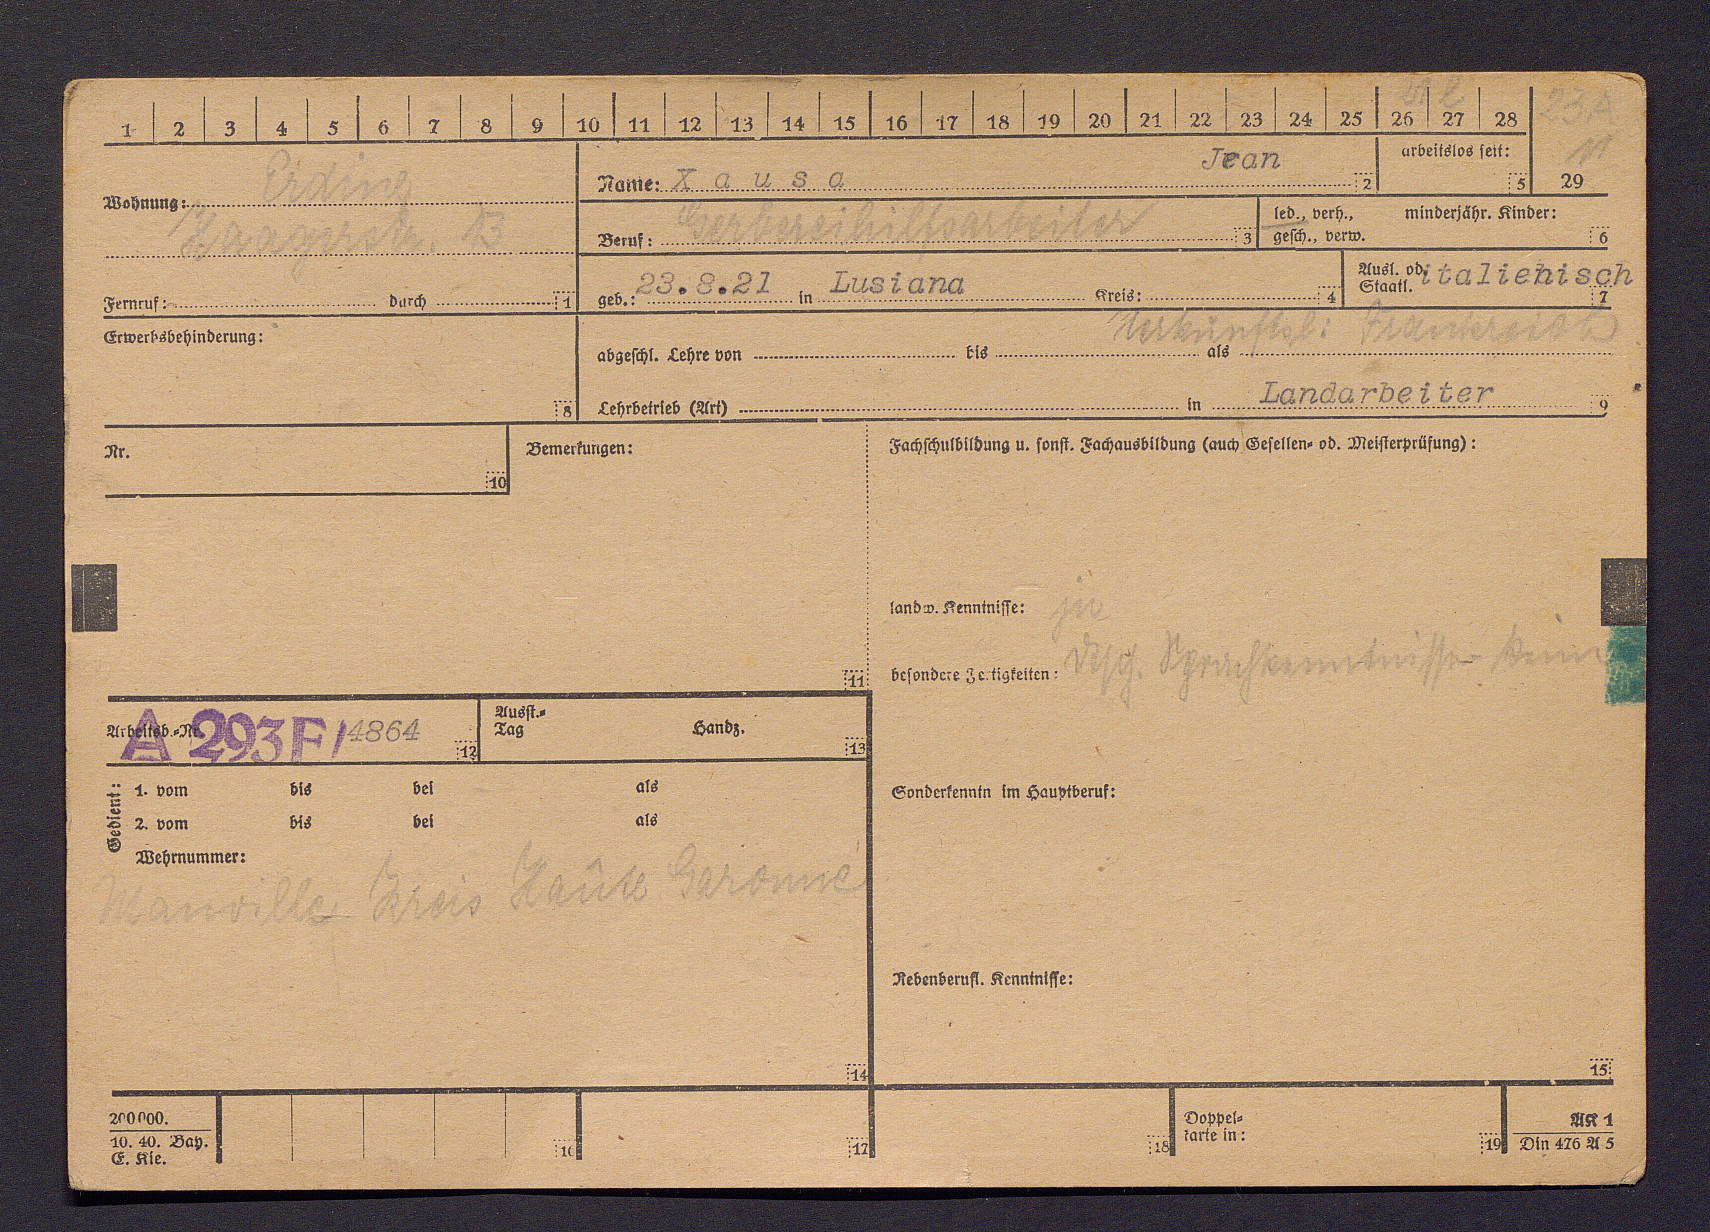 1 2 3 4 5 6 7 8 9 10 11 12 13 14 15 16 17 18 19 20 21 22 23 24 25 26 27 28 29
Wohnung: Erding
Haagerstr. 13
Fernruf: durch 1
Name: X a u s a Jean 2
arbeitslos seit: 5
Beruf: Gerbereihilfsarbeiter 3
led., verh., minderjähr. Kinder:
gesch., verw. 6
geb.: 23.8.21 in Lusiana Kreis: 4
Ausl. od. italienisch
Staatl. 7
Erwerbsbehinderung: 8
Herkunftsl: Frankreich
abgeschl. Lehre von bis als
Lehrbetrieb (Art) in Landarbeiter 9
Nr. 10
Bemerkungen: 11
Fachschulbildung u. sonst. Fachausbildung (auch Gesellen- od. Meisterprüfung):
landw. Kenntnisse: ja
besondere Fertigkeiten: dtsch. Sprachkenntnisse - keine
Arbeitsb.-Nr. A 293F/4864 12
Ausst.-
Tag Handz. 13
Gedient:
1. vom bis bei als
2. vom bis bei als
Wehrnummer:
Manville Kreis Haute Garonne
14
Sonderkenntn im Hauptberuf:
Nebenberufl. Kenntnisse:
15
200000.
10. 40. Bay.
E. Kie.
16 17 18
Doppel-
karte in: 19
AK 1
Din 476 A 5